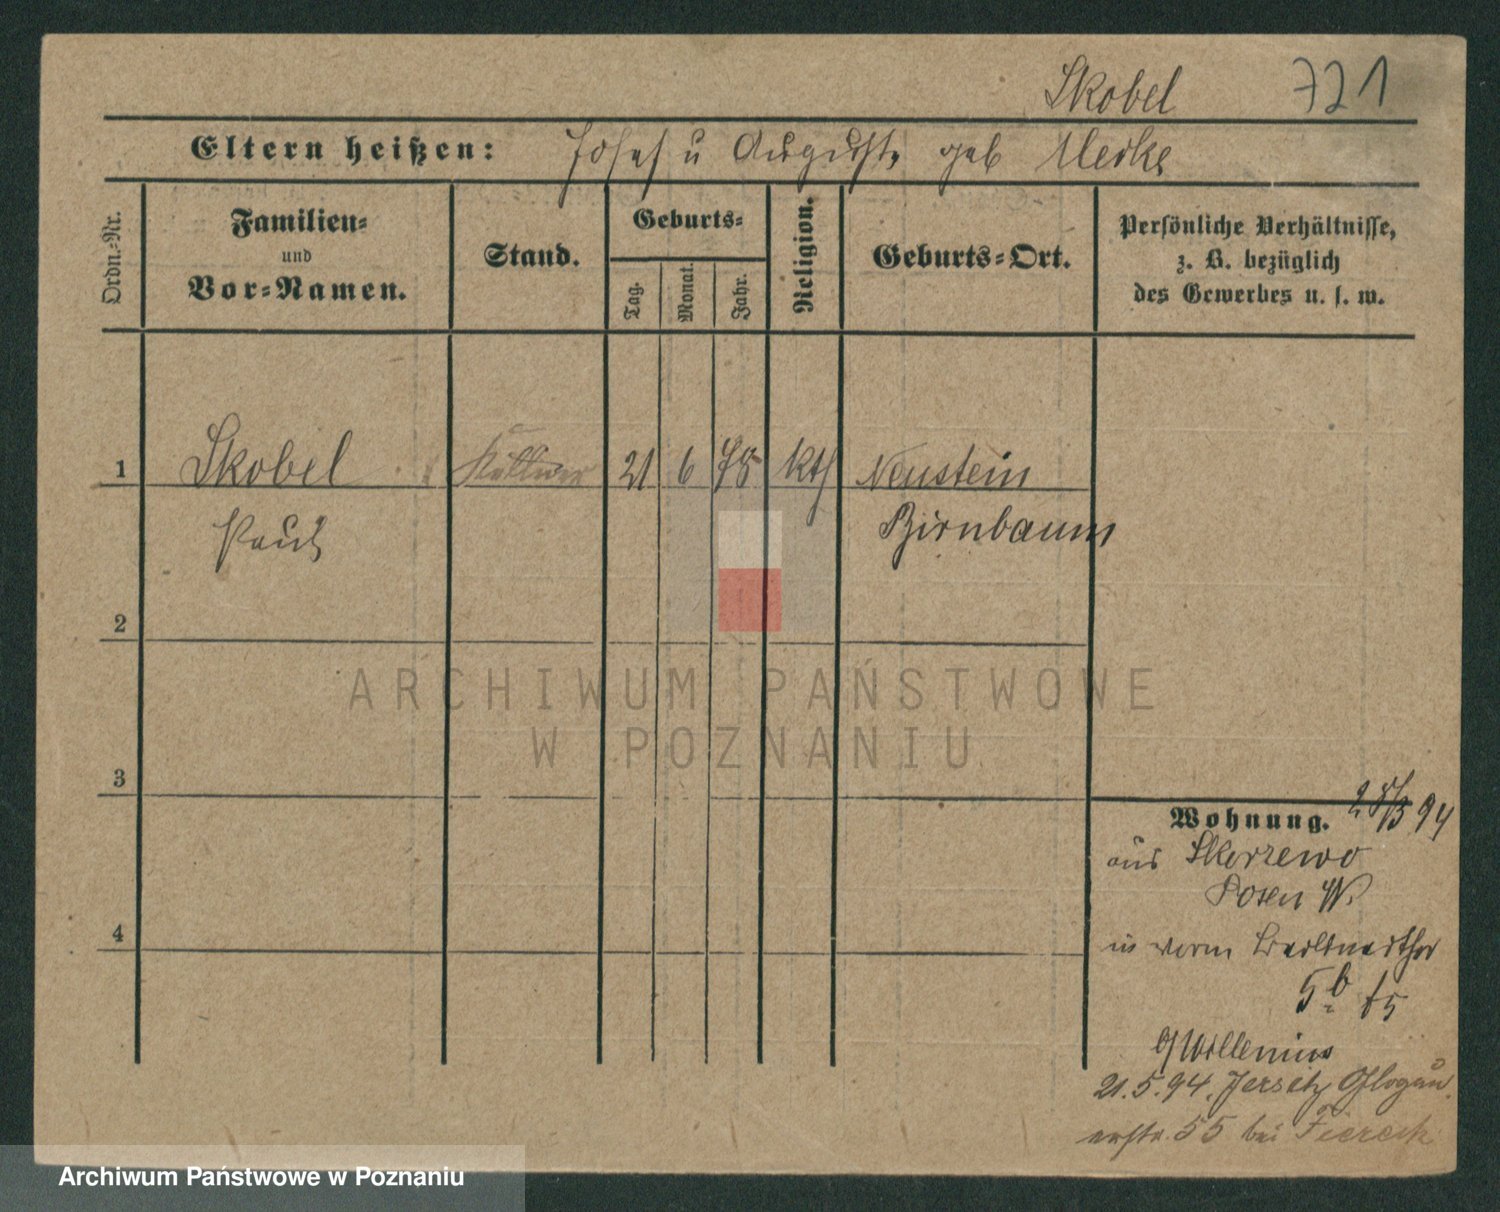 Skobel 721
Eltern heißen: Josef u Auguste geb Merke
Ordn.-Nr.
Familien-
und
Vor-Namen.
Stand.
Geburts-
Tag.
Monat.
Jahr.
Religion.
Geburts-Ort.
Persönliche Verhältnisse,
z. B. bezüglich
des Gewerbes u. s. w.
1 Skobel Kellner 21 6 75 kth Neustein
Paul Birnbaum
2
3
4
Wohnung. 28/3 94
aus Skorzewo
Posen W.
in vorm Berlinerthor
5b
21.5.94. Jersitz Glogau.
erstr. 55 bei Fiereck
ARCHIWUM PAŃSTWOWE
W POZNANIU
Archiwum Państwowe w Poznaniu